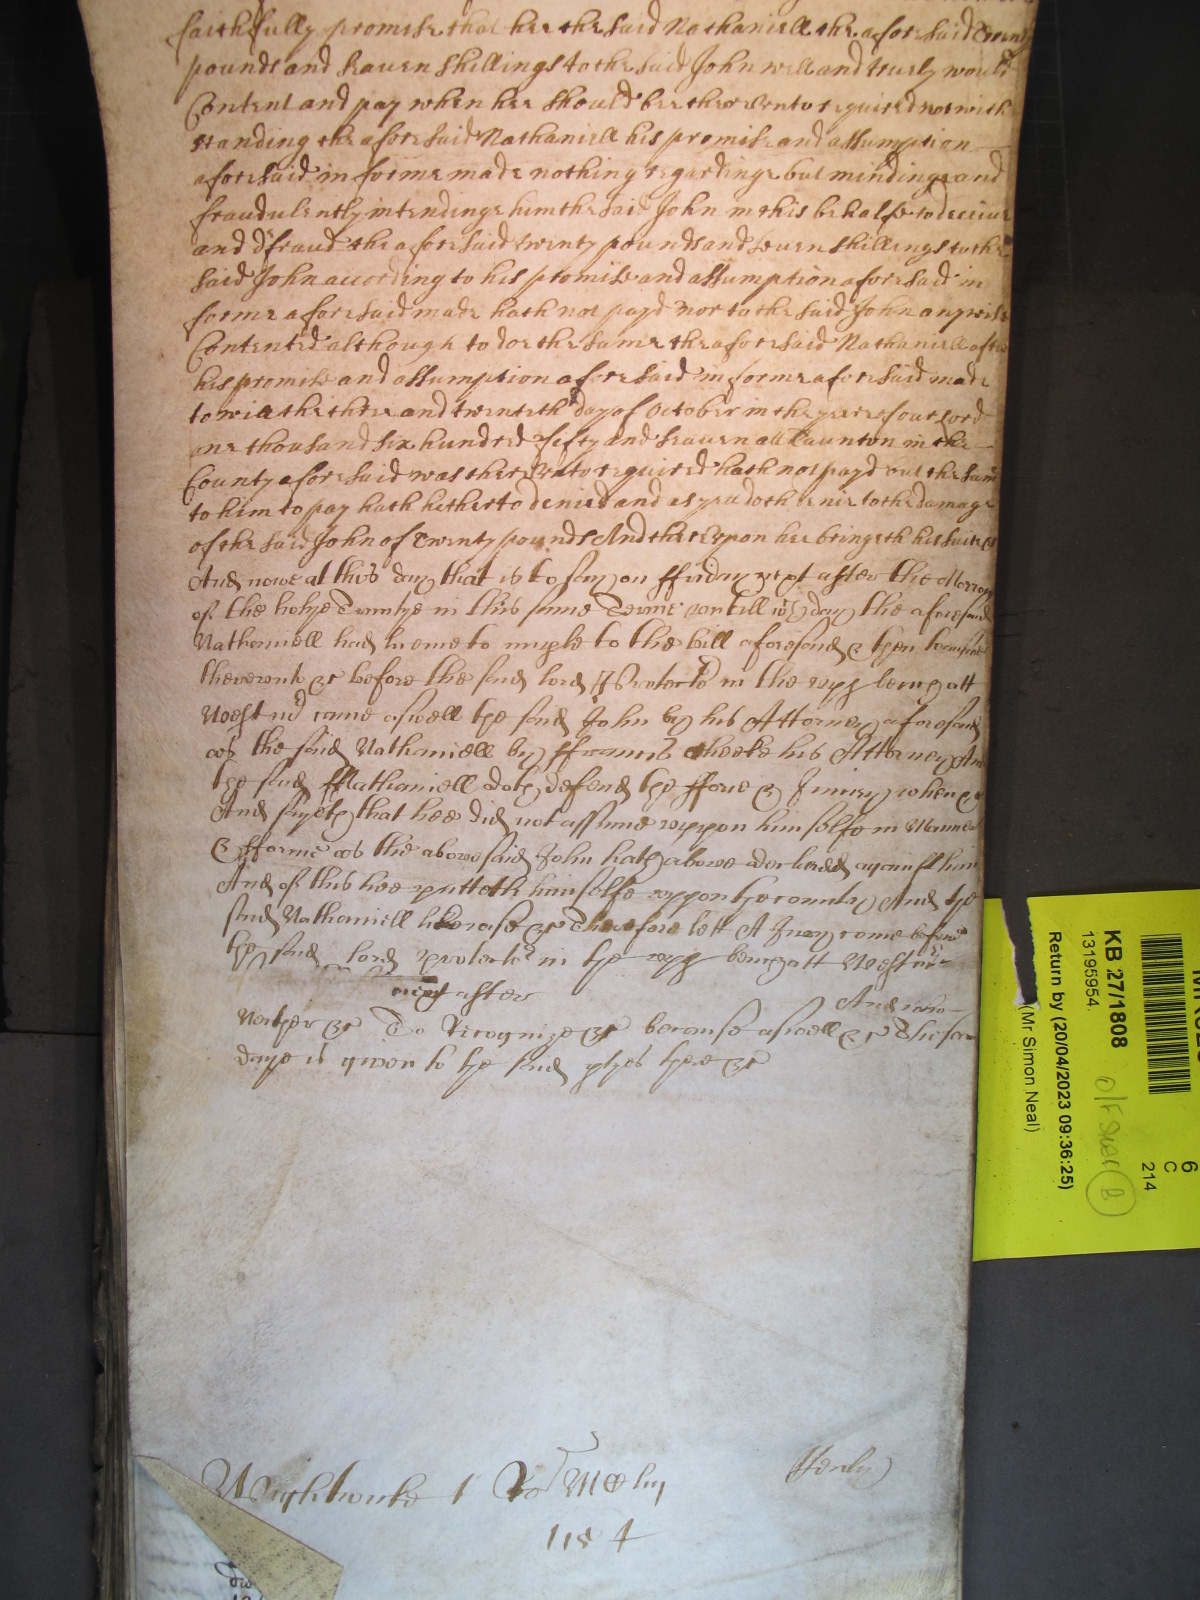 faithfully promise that hee the said Nathaniell the aforesaid Twenty
pounds and seaven shillings to the said John well and truely would
Content and pay when hee should bee therevnto required notwith
standing the aforesaid Nathaniell his promise and assumption
aforesaid in forme made nothing regardinge but mindinge and
fraudulently intendinge him the said John in this behalfe to deceive
and defraud the aforesaid twenty pounds and seven shillings to the
said John according to his promise and assumption aforesaid in
forme aforesaid made hath not payd nor to the said John anywise
Contented although to doe the same the aforesaid Nathaniell after
his promise and assumption aforesaid in forme aforesaid made
to witt the three and twentieth day of October in the yeere of our Lord
one thousand six hundred fifty and seaven att Taunton in the
County aforesaid was therevnto required hath not payd but the same
to him to pay hath hitherto denied and as yeu doth denie to the damage
of the said John of Twenty pounds And therevpon hee bringeth his suite &
And nowe at this day that is to say on ffriday next after the Morrow
of the holye Trinitye in this same Terme vntill wch day the aforesaid
Nathaniell had licence to imple to the bill aforesaid & then to
therevnto &c before the said lord Protector in the vpp bench att
Westmr came aswell the said John by his Attorney aforesaid
as the said Nathaniell by ffrancis Cheeke his Attorney And
the said Nathaniell doth defend the fforce & Iniury when &c
And sayeth that hee did not assume vppon himselfe in Manner
& fforme as the abovesaid John hath above declared against him
And of this hee putteth himselfe vppon the country And the
said Nathaniell likewise &c Therefore lett A Jury come before
the said lord protector in the vpp bench att Westmr
next after And who
Neither &c To Recognize &c because aswell &c The same
daye is given to the said ptyes here &c
Wightwicke 1 To
Henly
1154
KB 27/1808
13195954.
Return by (20/04/2023 09:36:25)
(Mr Simon Neal)
6
C
214